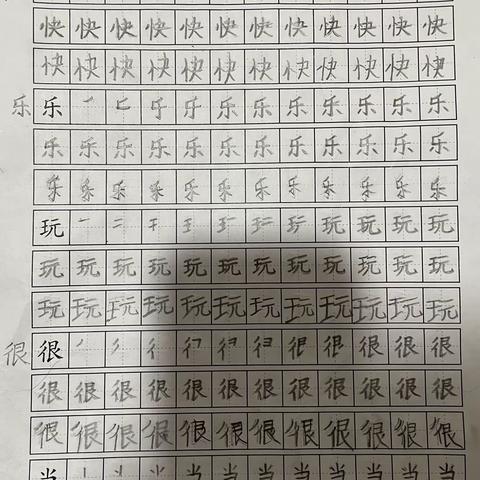 快快快快快快快快快快快快
快快快快快快快快快快快快
乐 乐 乐乐乐乐乐乐乐
乐乐乐乐乐乐乐乐乐乐乐乐
乐乐乐乐乐乐乐乐乐乐乐乐
玩 玩玩玩玩
玩玩玩玩玩玩玩玩玩玩玩玩
玩玩玩玩玩玩玩玩玩玩玩玩
很 很 很很很
很很很很很很很很很很很很
很很很很很很很很很很很很
当 当当当当当当